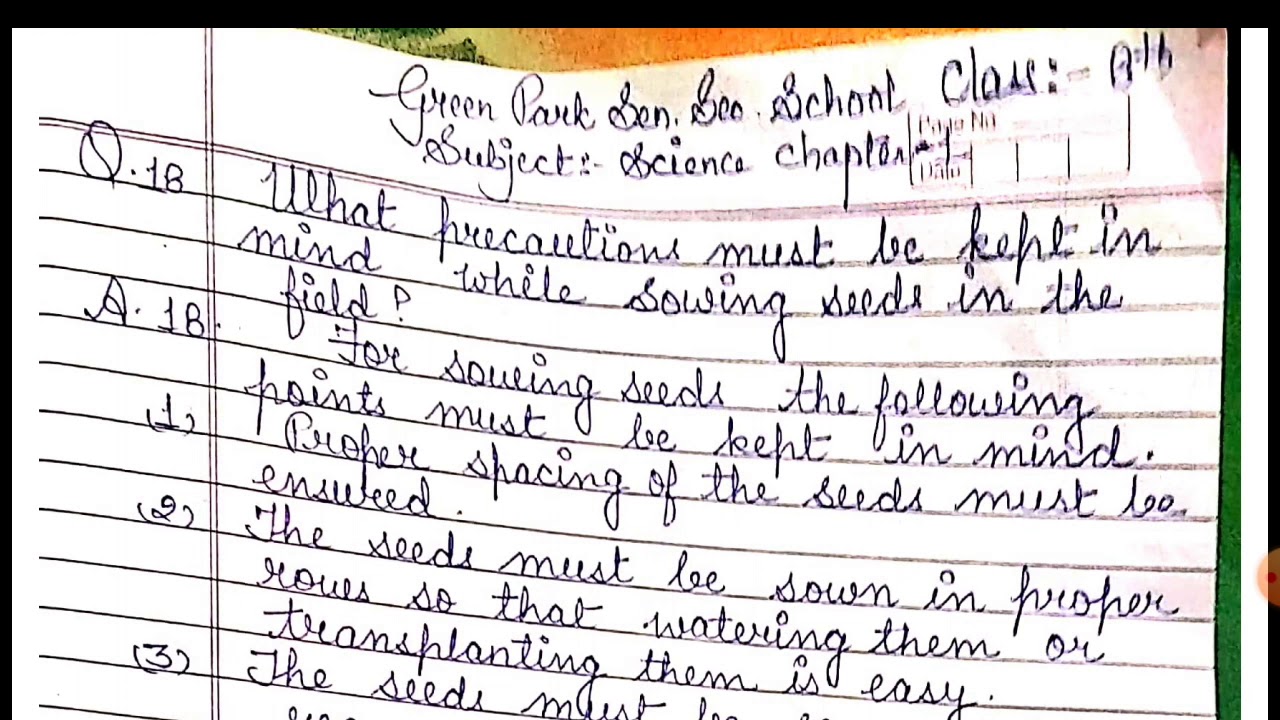 Green Park Sen. Sec. School Class:- 8th
Page No.
Subject:- Science Chapter-1
Date
Q.18 What precautions must be kept in
mind while sowing seeds in the
field?
A.18. For soweing seeds the following
points must be kept in mind.
(1) Proper spacing of the seeds must be
ensured.
(2) The seeds must be sown in proper
rows so that watering them or
transplanting them is easy.
(3) The seeds must be